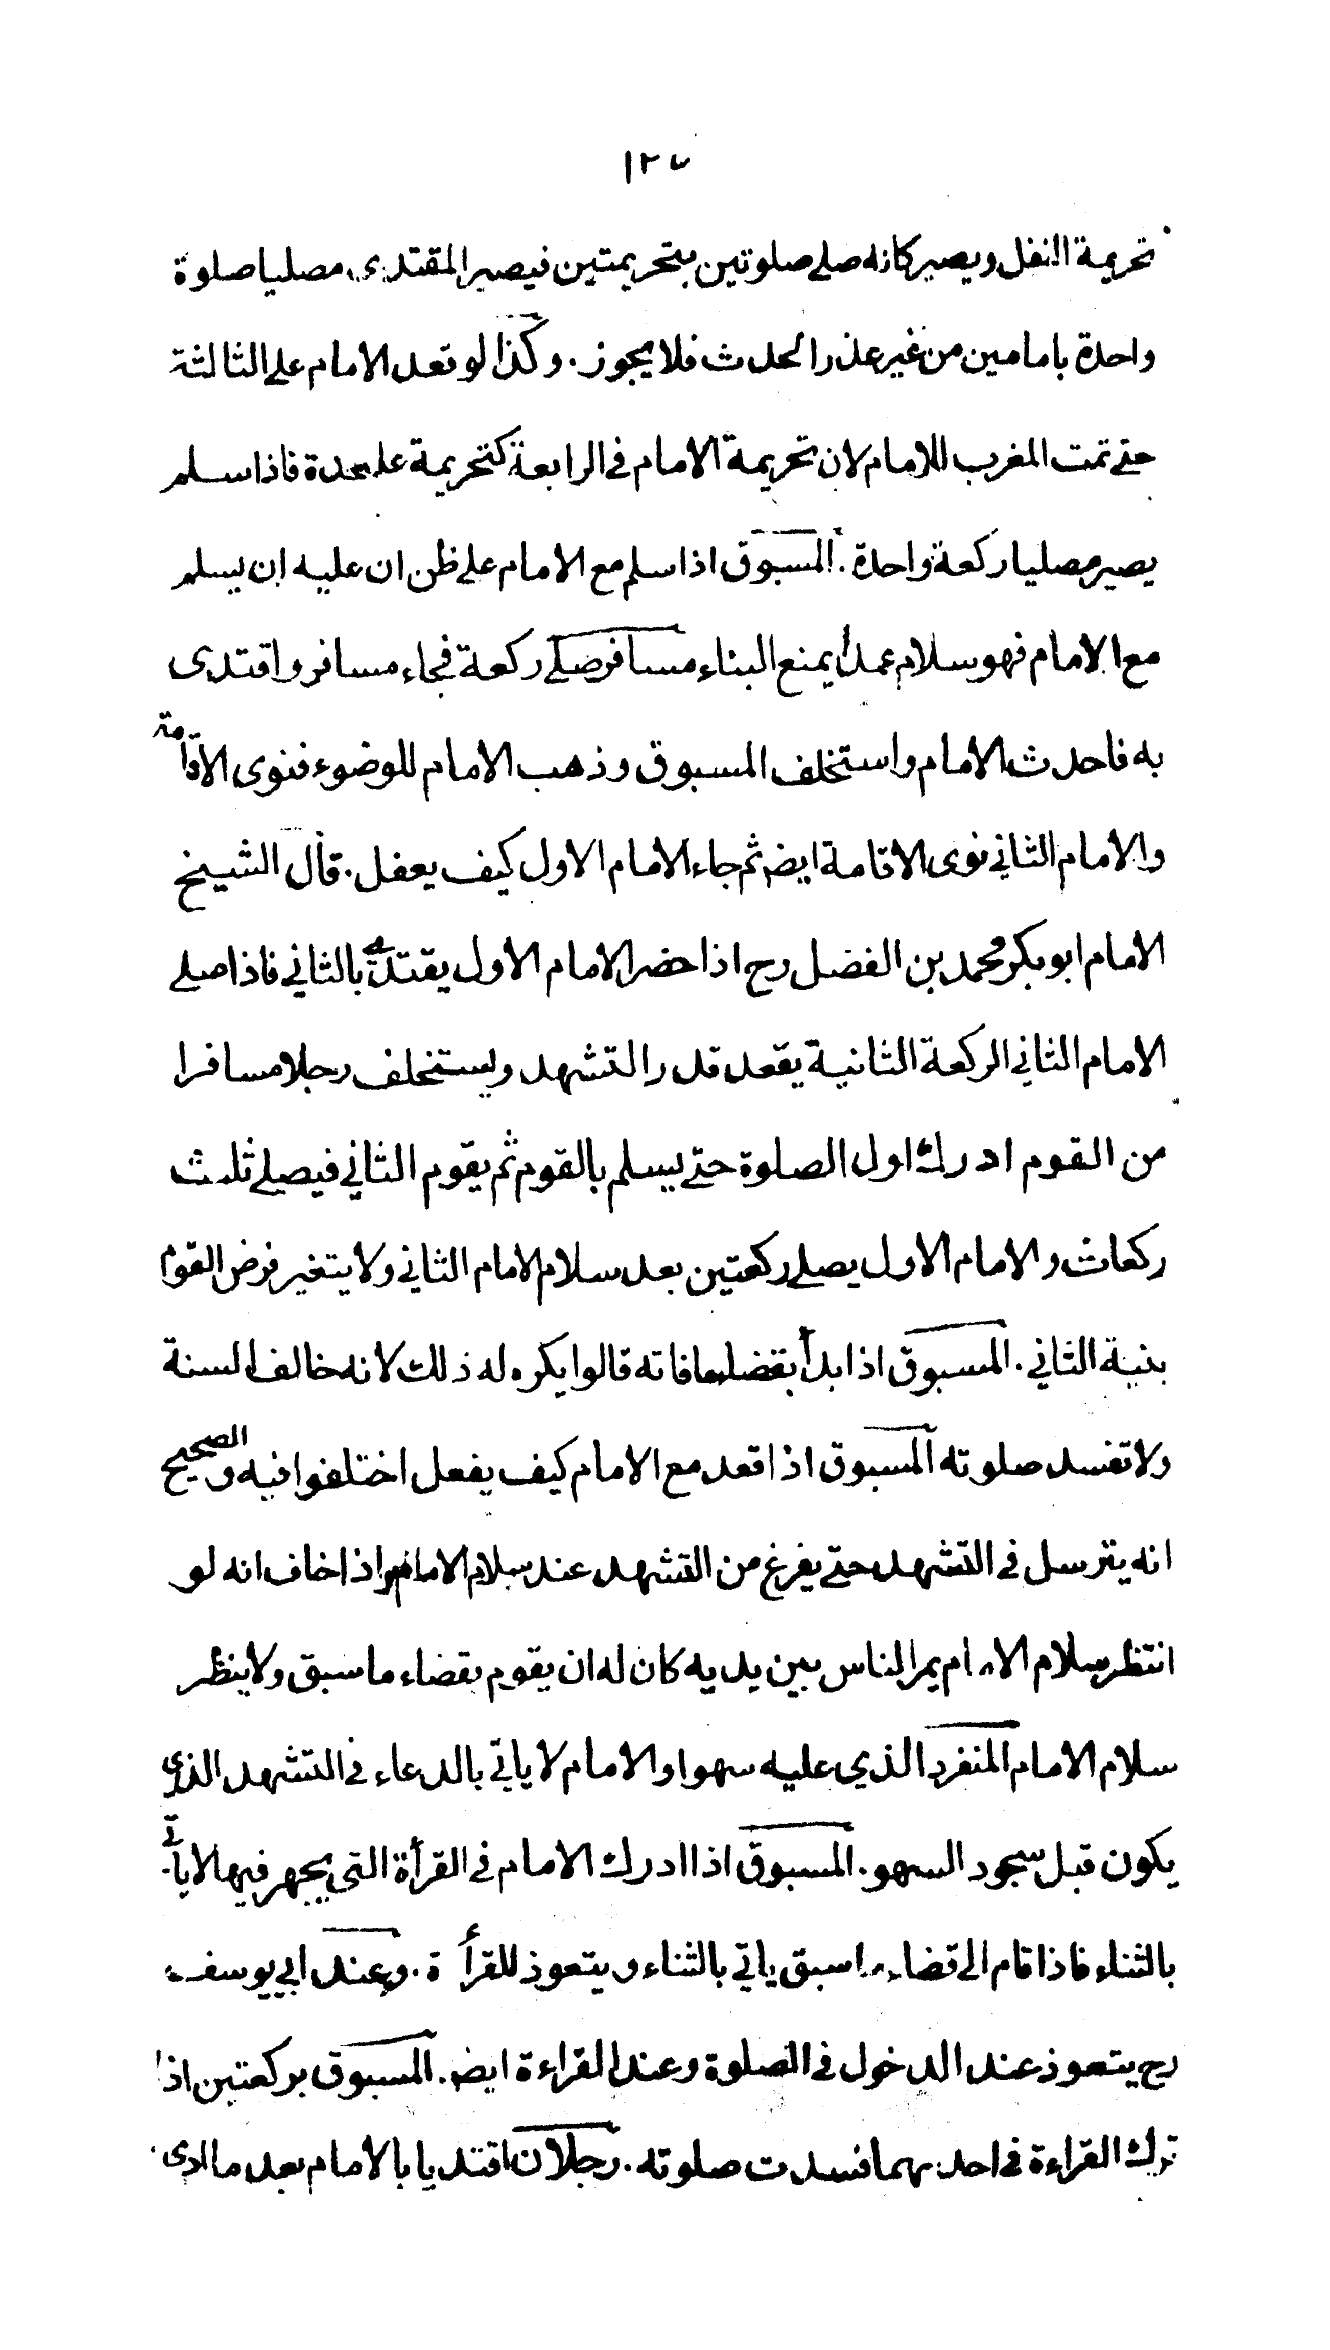 ١٢٧
تحريمة النفل ويصير كانه صلے صلوتين بتحريمتين فيصير المقتدى مصليا صلوة
واحدة بامامين من غير عذر الحدث فلا يجوز . وكذا لو قعد الامام علے الثالثة
حتے تمت المغرب للامام لان تحريمة الامام فى الرابعة كتحريمة علے حدة فاذا سلم
يصير مصليا ركعة واحدة . المسبوق اذا سلم مع الامام علے ظن ان عليه ان يسلم
مع الامام فهو سلام عمدأ يمنع البناء مسافر صلے ركعة فجاء مسافر واقتدى
به فاحدث الامام واستخلف المسبوق وذهب الامام للوضوء فنوى الاقامة
والامام الثاني نوى الاقامة ايض ثم جاء الامام الاول كيف يعفل . قال الشيخ
الامام ابو بكر محمد بن الفضل رح اذا حضر الامام الاول يقتدے بالثاني فاذا صلے
الامام الثاني الركعة الثانية يقعد قدر التشهد ويستخلف رجلا مسافرا
من القوم ادرك اول الصلوة حتے يسلم بالقوم ثم يقوم الثاني فيصلے ثلث
ركعات والامام الاول يصلے ركعتين بعد سلام الامام الثاني ولا يتغير فرض القوم
بنية الثاني . المسبوق اذا بدأ بقضاء ما فاته قالوا يكره له ذلك لانه خالف السنة
ولا تفسد صلوته المسبوق اذا قعد مع الامام كيف يفعل اختلفوا فيه والصحيح
انه يترسل فى التشهد حتے يفرغ من التشهد عند سلام الامام واذا خاف انه لو
انتظر سلام الامام يمر الناس بين يديه كان له ان يقوم بقضاء ما سبق ولا ينظر
سلام الامام المنفرد الذي عليه سهوا والامام لا ياتي بالدعاء فى التشهد الذي
يكون قبل سجود السهو . المسبوق اذا ادرك الامام فى القرأة التى يجهر فيها لا يأتي
بالثناء فاذا قام الى قضاء ما سبق ياتي بالثناء ويتعوذ للقرأة . وعند ابي يوسف
رح يتعوذ عند الدخول فى الصلوة وعند القراءة ايض . المسبوق بركعتين اذا
ترك القراءة فى احدىهما فسدت صلوته . رجلان اقتديا بالامام بعد ما ادى